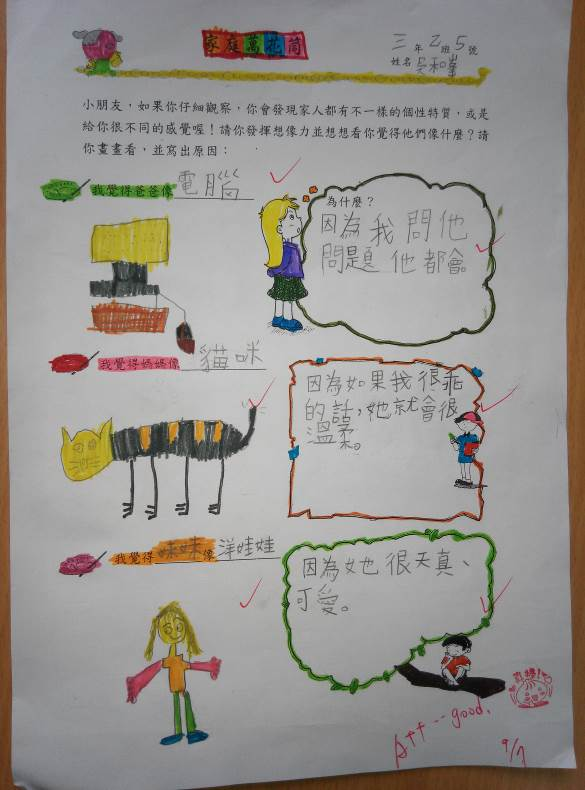 家庭萬花筒
三年乙班5號
姓名 吳和峯
小朋友，如果你仔細觀察，你會發現家人都有不一樣的個性特質，或是
給你很不同的感覺喔！請你發揮想像力並想想看你覺得他們像什麼？請
你畫畫看，並寫出原因：
我覺得爸爸像 電腦
為什麼？
因為我問他
問題他都會。
我覺得媽媽像 貓咪
因為如果我很乖
的話，她就會很
溫柔。
我覺得妹妹像 洋娃娃
因為她很天真、
可愛。
A++ --- good.
9/7